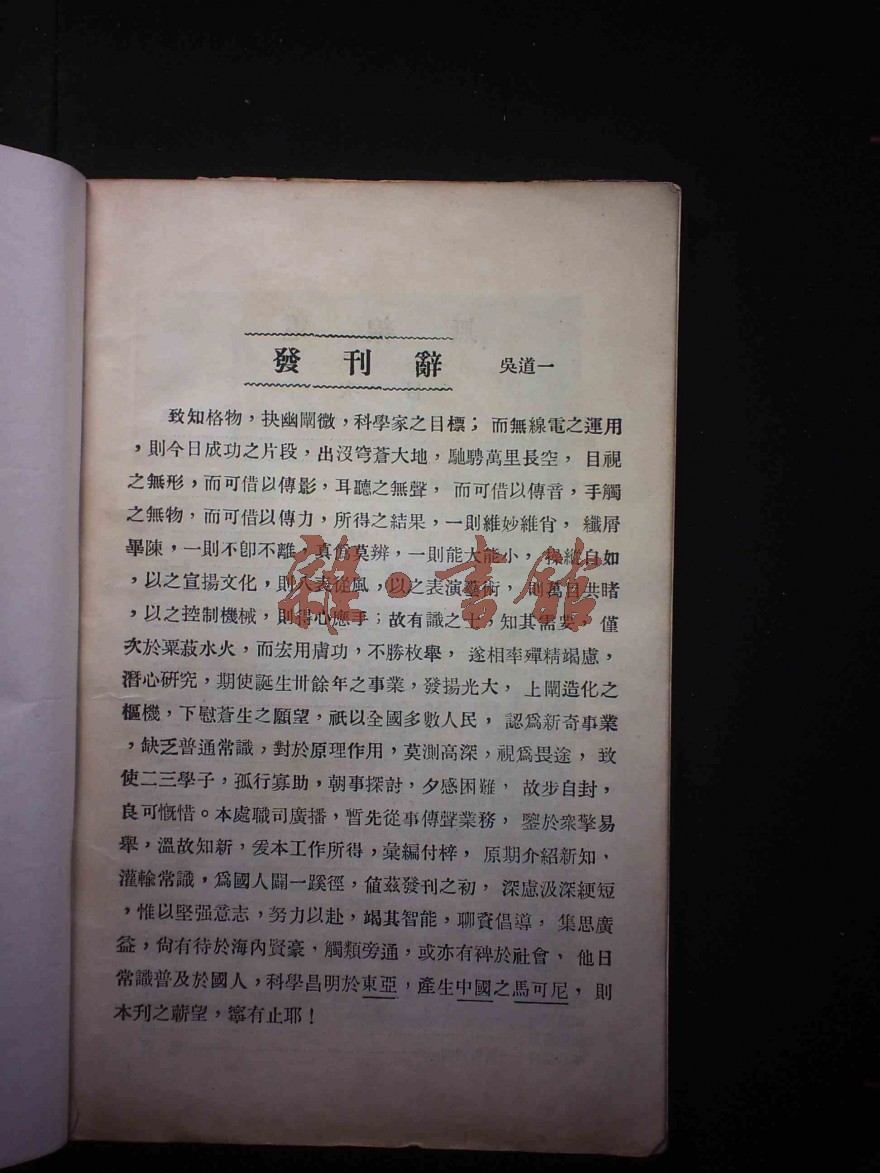 發刊辭 吳道一
致知格物，抉幽闡微，科學家之目標；而無線電之運用
，則今日成功之片段，出沒穹蒼大地，馳騁萬里長空，目視
之無形，而可借以傳影，耳聽之無聲，而可借以傳音，手觸
之無物，而可借以傳力，所得之結果，一則維妙維肖，纖屑
畢陳，一則不卽不離，真僞莫辨，一則能大能小，操縱自如
，以之宣揚文化，則八表從風，以之表演藝術，則萬目共睹
，以之控制機械，則得心應手；故有識之士，知其需要，僅
次於粟菽水火，而宏用膚功，不勝枚舉，遂相率殫精竭慮，
潛心研究，期使誕生卅餘年之事業，發揚光大，上闡造化之
樞機，下慰蒼生之願望，祇以全國多數人民，認爲新奇事業
，缺乏普通常識，對於原理作用，莫測高深，視爲畏途，致
使二三學子，孤行寡助，朝事探討，夕感困難，故步自封，
良可慨惜。本處職司廣播，暫先從事傳聲業務，鑒於衆擎易
舉，溫故知新，爰本工作所得，彙編付梓，原期介紹新知，
灌輸常識，爲國人闢一蹊徑，値茲發刊之初，深慮汲深綆短
，惟以堅强意志，努力以赴，竭其智能，聊資倡導，集思廣
益，尙有待於海內賢豪，觸類旁通，或亦有裨於社會，他日
常識普及於國人，科學昌明於東亞，產生中國之馬可尼，則
本刊之蘄望，寧有止耶！
雜·書館